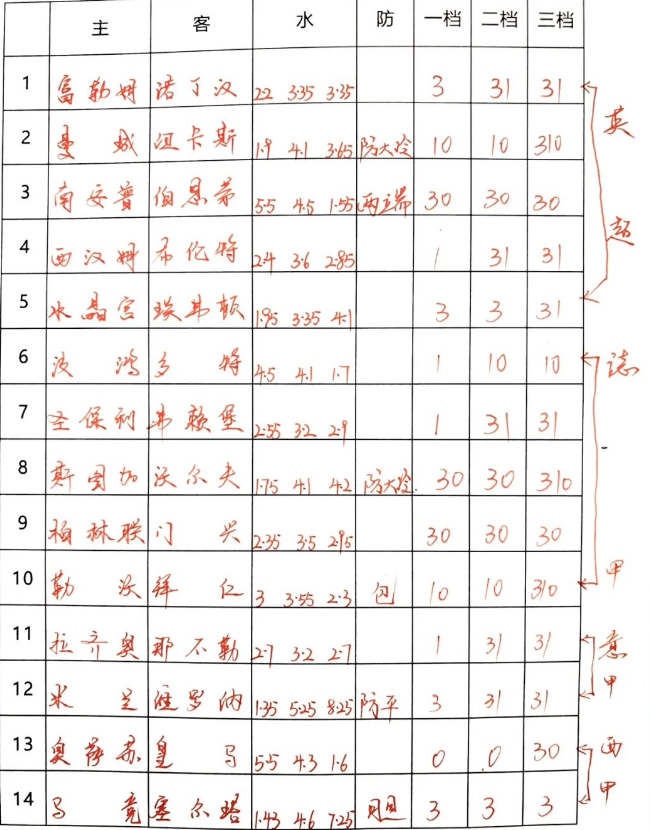 主 客 水 防 一档 二档 三档
1 富勒姆 诺丁汉 2.2 3.35 3.35 3 31 31
英
2 曼城 纽卡斯 1.9 4.1 3.65 防大冷 10 10 310
3 南安普 伯恩茅 5.5 4.5 1.55 两端 30 30 30
超
4 西汉姆 布伦特 2.4 3.6 2.85 1 31 31
5 水晶宫 埃弗顿 1.95 3.35 4.1 3 3 31
6 波鸿 多特 4.5 4.1 1.7 1 10 10
7 圣保利 弗赖堡 2.55 3.2 2.9 1 31 31
8 斯图加 沃尔夫 1.75 4.1 4.2 防大冷 30 30 310
9 柏林联 门兴 2.35 3.5 2.95 30 30 30
甲
10 勒沃 拜仁 3 3.55 2.3 包 10 10 310
11 拉齐奥 那不勒 2.7 3.2 2.7 1 31 31
意
12 米兰 维罗纳 1.35 5.25 8.25 防平 3 31 31
甲
13 奥萨苏 皇马 5.5 4.3 1.6 0 0 30
西
14 马竞 塞尔塔 1.43 4.6 7.25 3 3 3
甲